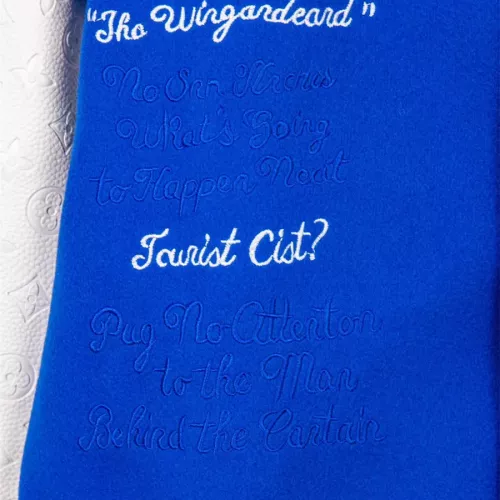 "Tho Wingardeard"
No Onn Knows
What's Going
to Happen Noeit
Tourist Cist?
Pug No Attenton
to the Man
Behind the Cartain